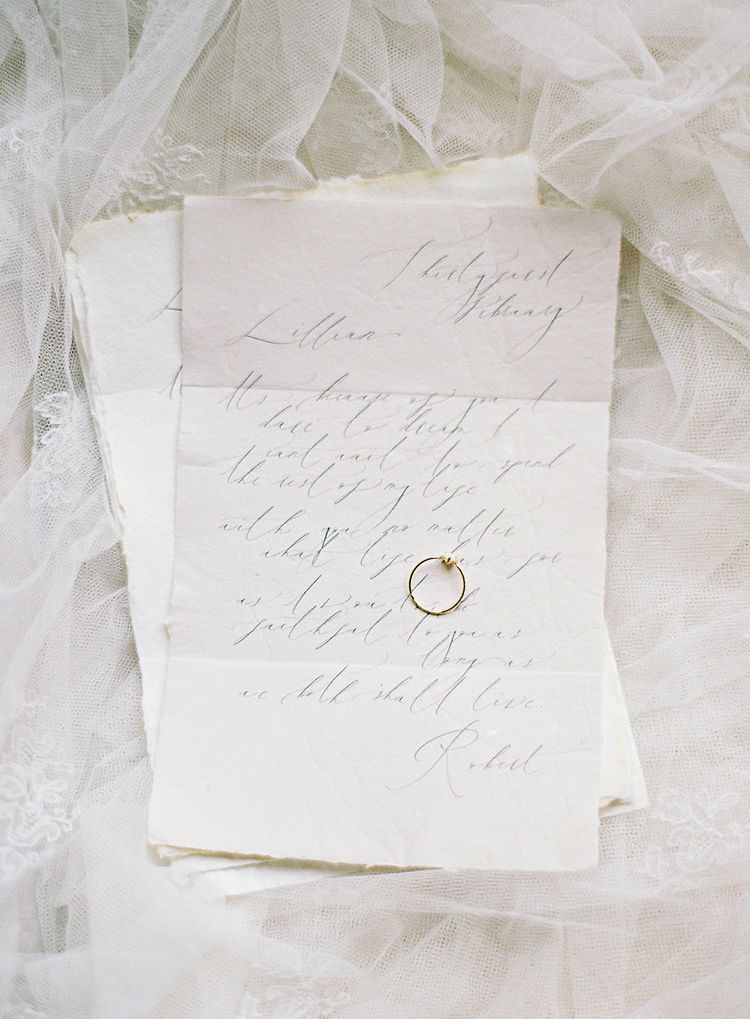 Thirtyfirst
February
Lillian
It's because of you I
dare to dream I
can't wait to spend
the rest of my life
with you no matter
what life has for
as I vow to be
faithful to you as
long as
we both shall live.
Robert
L